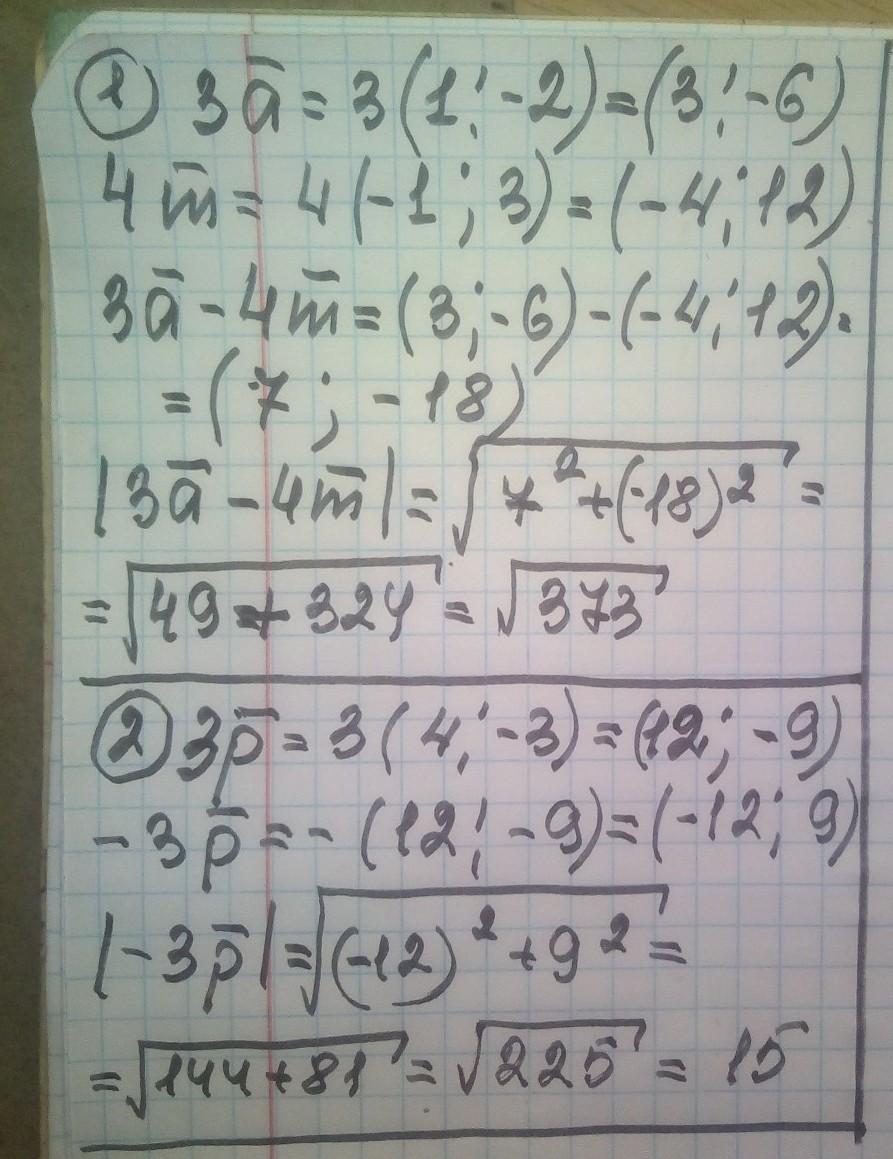 ① 3a̅ = 3(1; -2) = (3; -6)
4m̅ = 4(-1; 3) = (-4; 12)
3a̅ - 4m̅ = (3; -6) - (-4; 12) =
= (7; -18)
|3a̅ - 4m̅| = √(7² + (-18)²) =
= √(49 + 324) = √373
② 3p̅ = 3(4; -3) = (12; -9)
-3p̅ = -(12; -9) = (-12; 9)
|-3p̅| = √((-12)² + 9²) =
= √(144 + 81) = √225 = 15